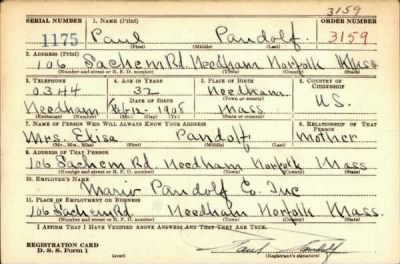 3159
SERIAL NUMBER 1. NAME (Print) ORDER NUMBER
1175 Paul Pandolf 3159
(First) (Middle) (Last)
2. ADDRESS (Print)
106 Sachem Rd. Needham Norfolk Mass
(Number and street or R. F. D. number) (Town) (County) (State)
3. TELEPHONE 4. AGE IN YEARS 5. PLACE OF BIRTH 6. COUNTRY OF CITIZENSHIP
0344 32 Needham
DATE OF BIRTH (Town or county)
Needham 1908 Mass U.S.
(Exchange) (Number) (Mo.) (Day) (Yr.) (State or country)
7. NAME OF PERSON WHO WILL ALWAYS KNOW YOUR ADDRESS 8. RELATIONSHIP OF THAT PERSON
Mrs. Elisa Pandolf Mother
(Mr., Mrs., Miss) (First) (Middle) (Last)
9. ADDRESS OF THAT PERSON
106 Sachem Rd. Needham Norfolk Mass
(Number and street or R. F. D. number) (Town) (County) (State)
10. EMPLOYER'S NAME
Mario Pandolf Co. Inc
11. PLACE OF EMPLOYMENT OR BUSINESS
106 Sachem Rd Needham Norfolk Mass.
(Number and street or R. F. D. number) (Town) (County) (State)
I AFFIRM THAT I HAVE VERIFIED ABOVE ANSWERS AND THAT THEY ARE TRUE.
REGISTRATION CARD
D. S. S. Form 1 (over) Paul Pandolf
(Registrant's signature)